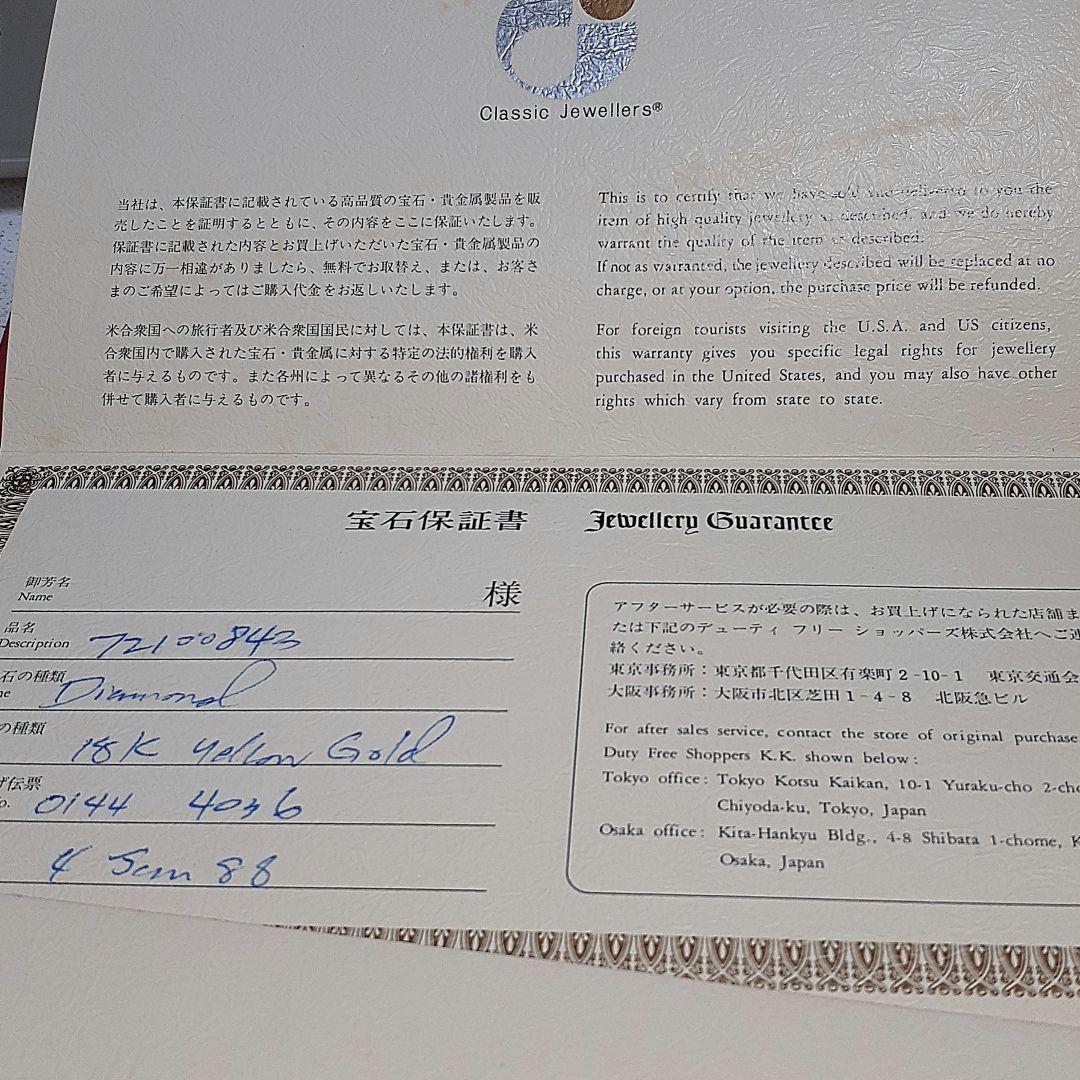 Classic Jewellers®
当社は、本保証書に記載されている高品質の宝石・貴金属製品を販
売したことを証明するとともに、その内容をここに保証いたします。
保証書に記載された内容とお買上げいただいた宝石・貴金属製品の
内容に万一相違がありましたら、無料でお取替え、または、お客さ
まのご希望によってはご購入代金をお返しいたします。
米合衆国への旅行者及び米合衆国国民に対しては、本保証書は、米
合衆国内で購入された宝石・貴金属に対する特定の法的権利を購入
者に与えるものです。また各州によって異なるその他の諸権利をも
併せて購入者に与えるものです。
This is to certify that we have sold and delivered to you the
item of high quality jewellery as described, and we do hereby
warrant the quality of the item as described.
If not as warranted, the jewellery described will be replaced at no
charge, or at your option, the purchase price will be refunded.
For foreign tourists visiting the U.S.A. and US citizens,
this warranty gives you specific legal rights for jewellery
purchased in the United States, and you may also have other
rights which vary from state to state.
宝石保証書 Jewellery Guarantee
御芳名
Name 様
品名
Description 72100843
石の種類
Diamond
の種類
18K Yellow Gold
伝票
0144 4036
4 Jan 88
アフターサービスが必要の際は、お買上げになられた店舗ま
たは下記のデューティ フリー ショッパーズ株式会社へご連
絡ください。
東京事務所：東京都千代田区有楽町2-10-1 東京交通会
大阪事務所：大阪市北区芝田1-4-8 北阪急ビル
For after sales service, contact the store of original purchase
Duty Free Shoppers K.K. shown below:
Tokyo office: Tokyo Kotsu Kaikan, 10-1 Yuraku-cho 2-cho
Chiyoda-ku, Tokyo, Japan
Osaka office: Kita-Hankyu Bldg., 4-8 Shibata 1-chome, K
Osaka, Japan